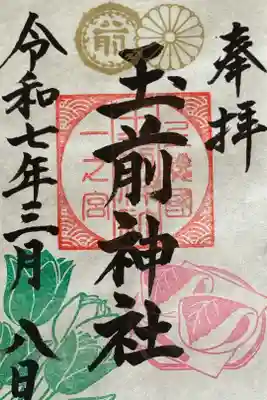 奉拝
前
玉前神社
上総國
一之宮
令和七年三月八日